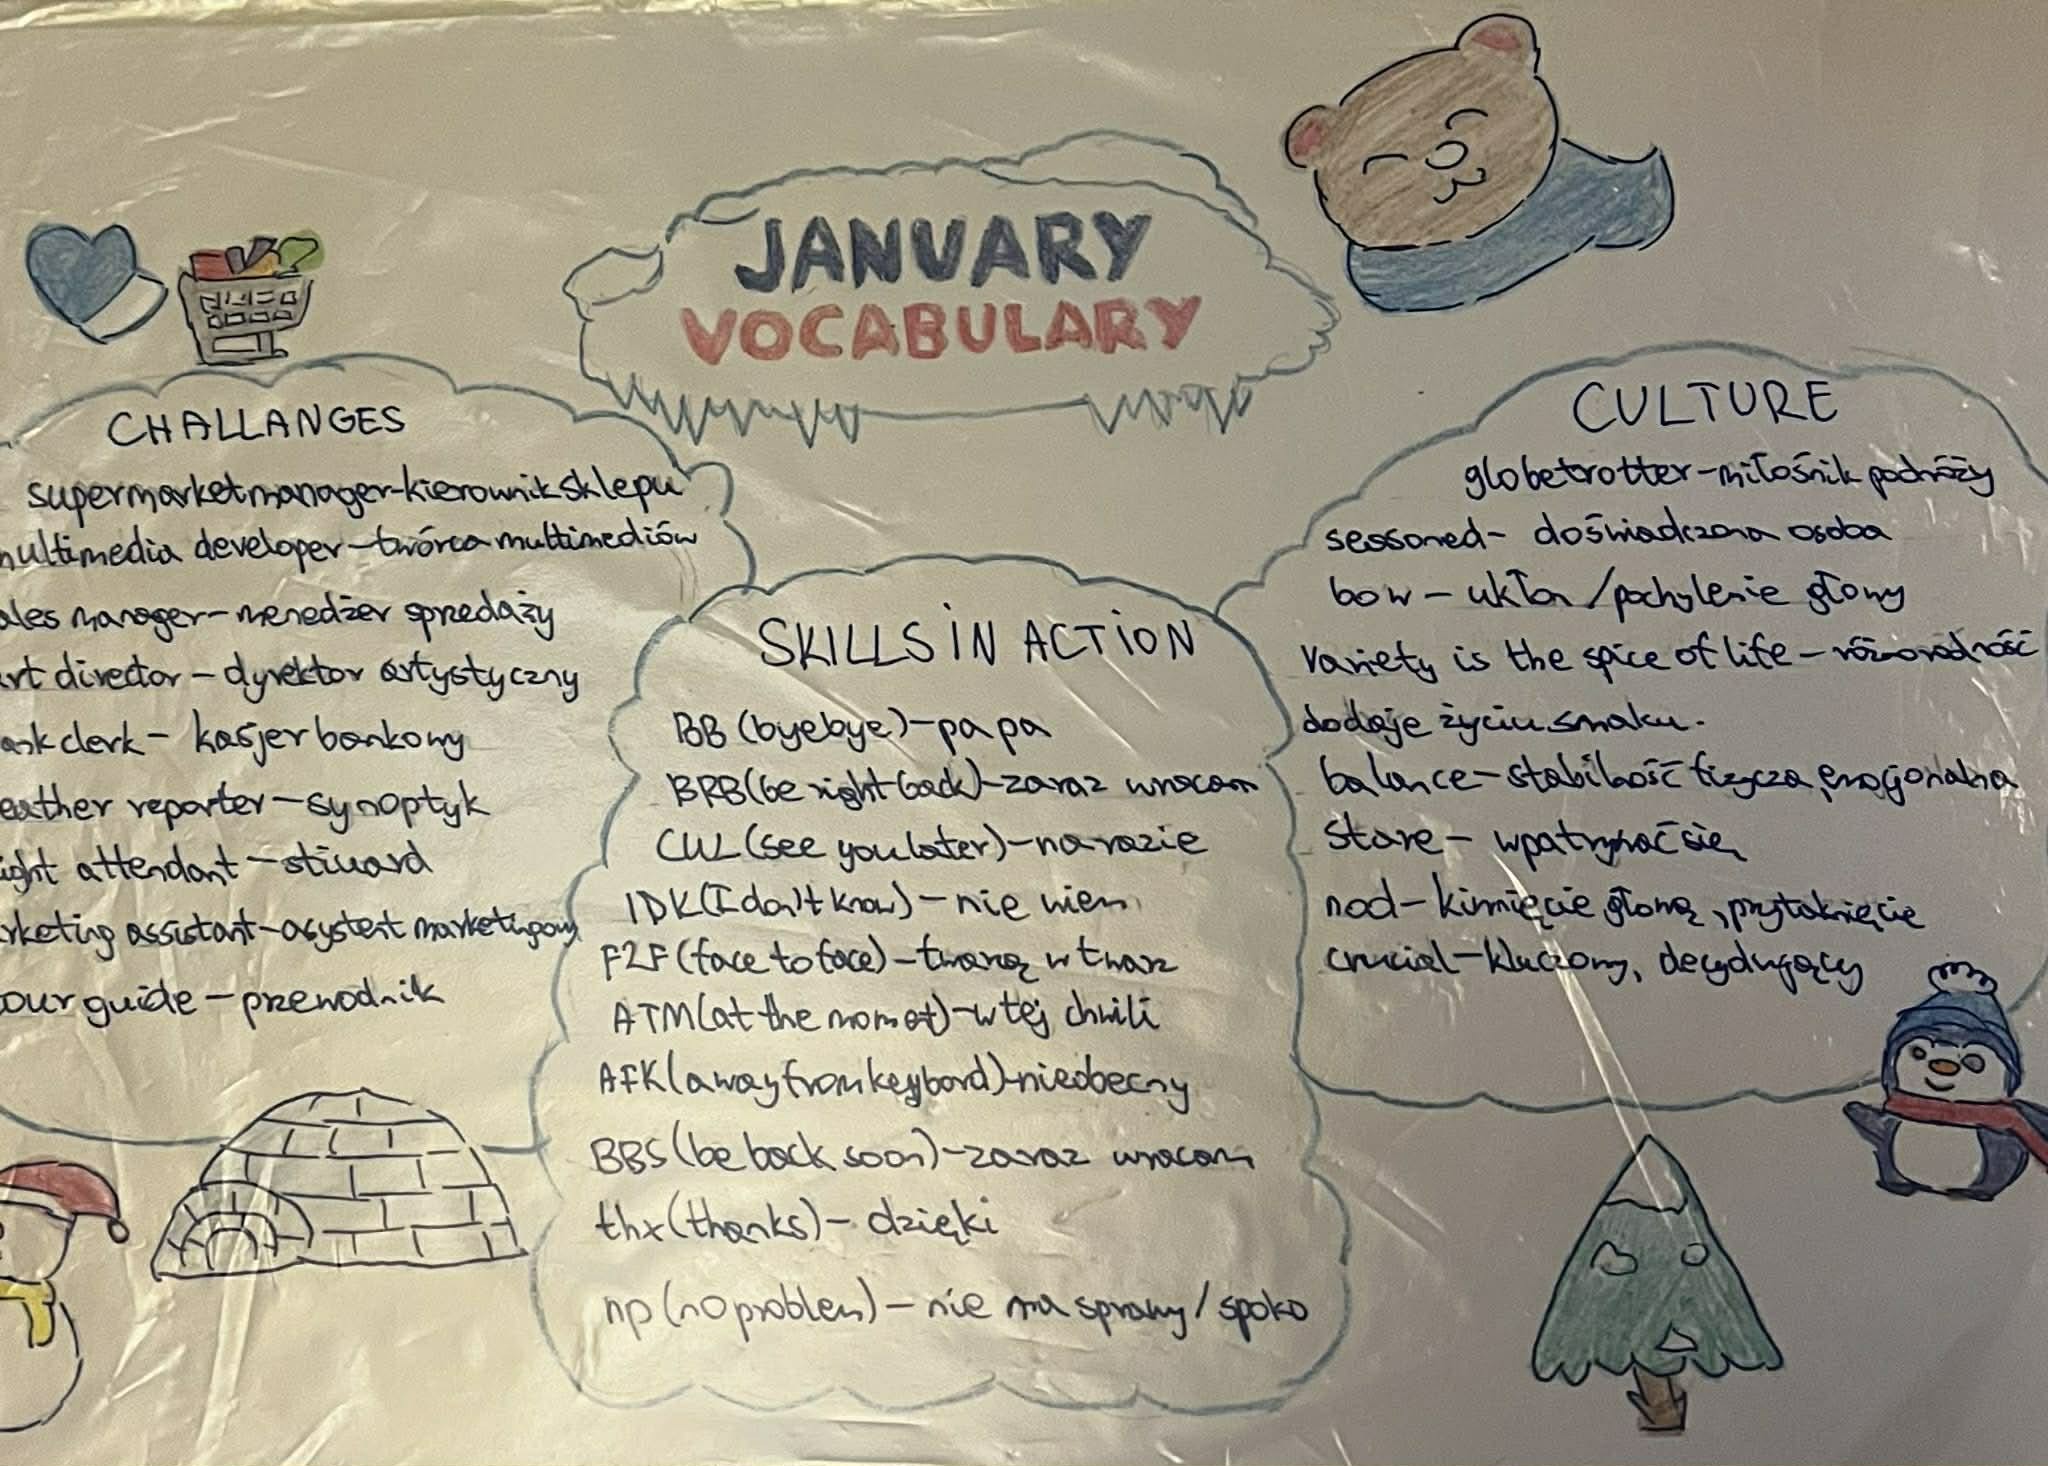 JANUARY
VOCABULARY
CHALLANGES
supermarket manager-kierownik sklepu
multimedia developer-twórca multimediów
ales manager-menedżer sprzedaży
rt director-dyrektor artystyczny
ank clerk- kasjer bankowy
eather reporter-synoptyk
ight attendant-stiuard
rketing assistant-asystent marketingowy
our guide-przewodnik
SKILLS IN ACTION
BB (byebye)-pa pa
BRB(be right back)-zaraz wracam
CUL(see you later)-na razie
IDK(I don't know)-nie wiem
F2F(face to face)-twarzą w twarz
ATM(at the momet)-w tej chwili
AFK(away from keybord)-nieobecny
BBS(be back soon)-zaraz wracam
thx(thanks)-dzięki
np(no problem)-nie ma sprawy/spoko
CULTURE
globetrotter-miłośnik podróży
sessoned- doświadczona osoba
bow-ukłon/pochylenie głowy
Variety is the spice of life-różnorodność
dodaje życiu smaku.
balance-stabilność fizycza, emocjonalna
stare- wpatrywać się
nod-kinnięcie głową, przytaknięcie
crucial-kluczowy, decydujący